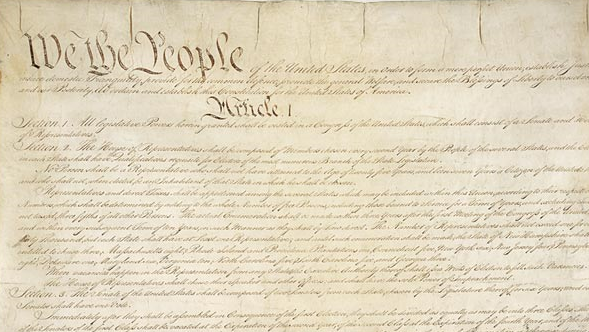 We the People of the United States, in Order to form a more perfect Union, establish
insure domestic Tranquility, provide for the common defence, promote the general Welfare, and secure the Blessings of Liberty to
and our Posterity, do ordain and establish this Constitution for the United States of America.
Article. I.
Section. 1. All legislative Powers herein granted shall be vested in a Congress of the United States, which shall consist of a Senate and
of Representatives.
Section. 2. The House of Representatives shall be composed of Members chosen every second Year by the People of the several States, and the
in each State shall have Qualifications requisite for Electors of the most numerous Branch of the State Legislature.
No Person shall be a Representative who shall not have attained to the Age of twenty five Years, and been seven Years a Citizen of the United
and who shall not, when elected, be an Inhabitant of that State in which he shall be chosen.
Representatives and direct Taxes shall be apportioned among the several States which may be included within this Union, according to their respective
Numbers, which shall be determined by adding to the whole Number of free Persons, including those bound to Service for a Term of Years, and excluding Indians
not taxed, three fifths of all other Persons. The actual Enumeration shall be made within three Years after the first Meeting of the Congress of the United
and within every subsequent Term of ten Years, in such Manner as they shall by Law direct. The Number of Representatives shall not exceed one for every
thirty Thousand, but each State shall have at Least one Representative; and until such enumeration shall be made, the State of New Hampshire shall be
entitled to chuse three, Massachusetts eight, Rhode Island and Providence Plantations one, Connecticut five, New York six, New Jersey four, Pennsylvania
eight, Delaware one, Maryland six, Virginia ten, North Carolina five, South Carolina five, and Georgia three.
When vacancies happen in the Representation from any State, the Executive Authority thereof shall issue Writs of Election to fill such Vacancies.
The House of Representatives shall chuse their Speaker and other Officers; and shall have the sole Power of Impeachment.
Section. 3. The Senate of the United States shall be composed of two Senators from each State, chosen by the Legislature thereof, for six Years; and each
Senator shall have one Vote.
Immediately after they shall be assembled in Consequence of the first Election, they shall be divided as equally as may be into three Classes.
of the Senators of the first Class shall be vacated at the Expiration of the second Year, of the second Class at the Expiration of the fourth Year,